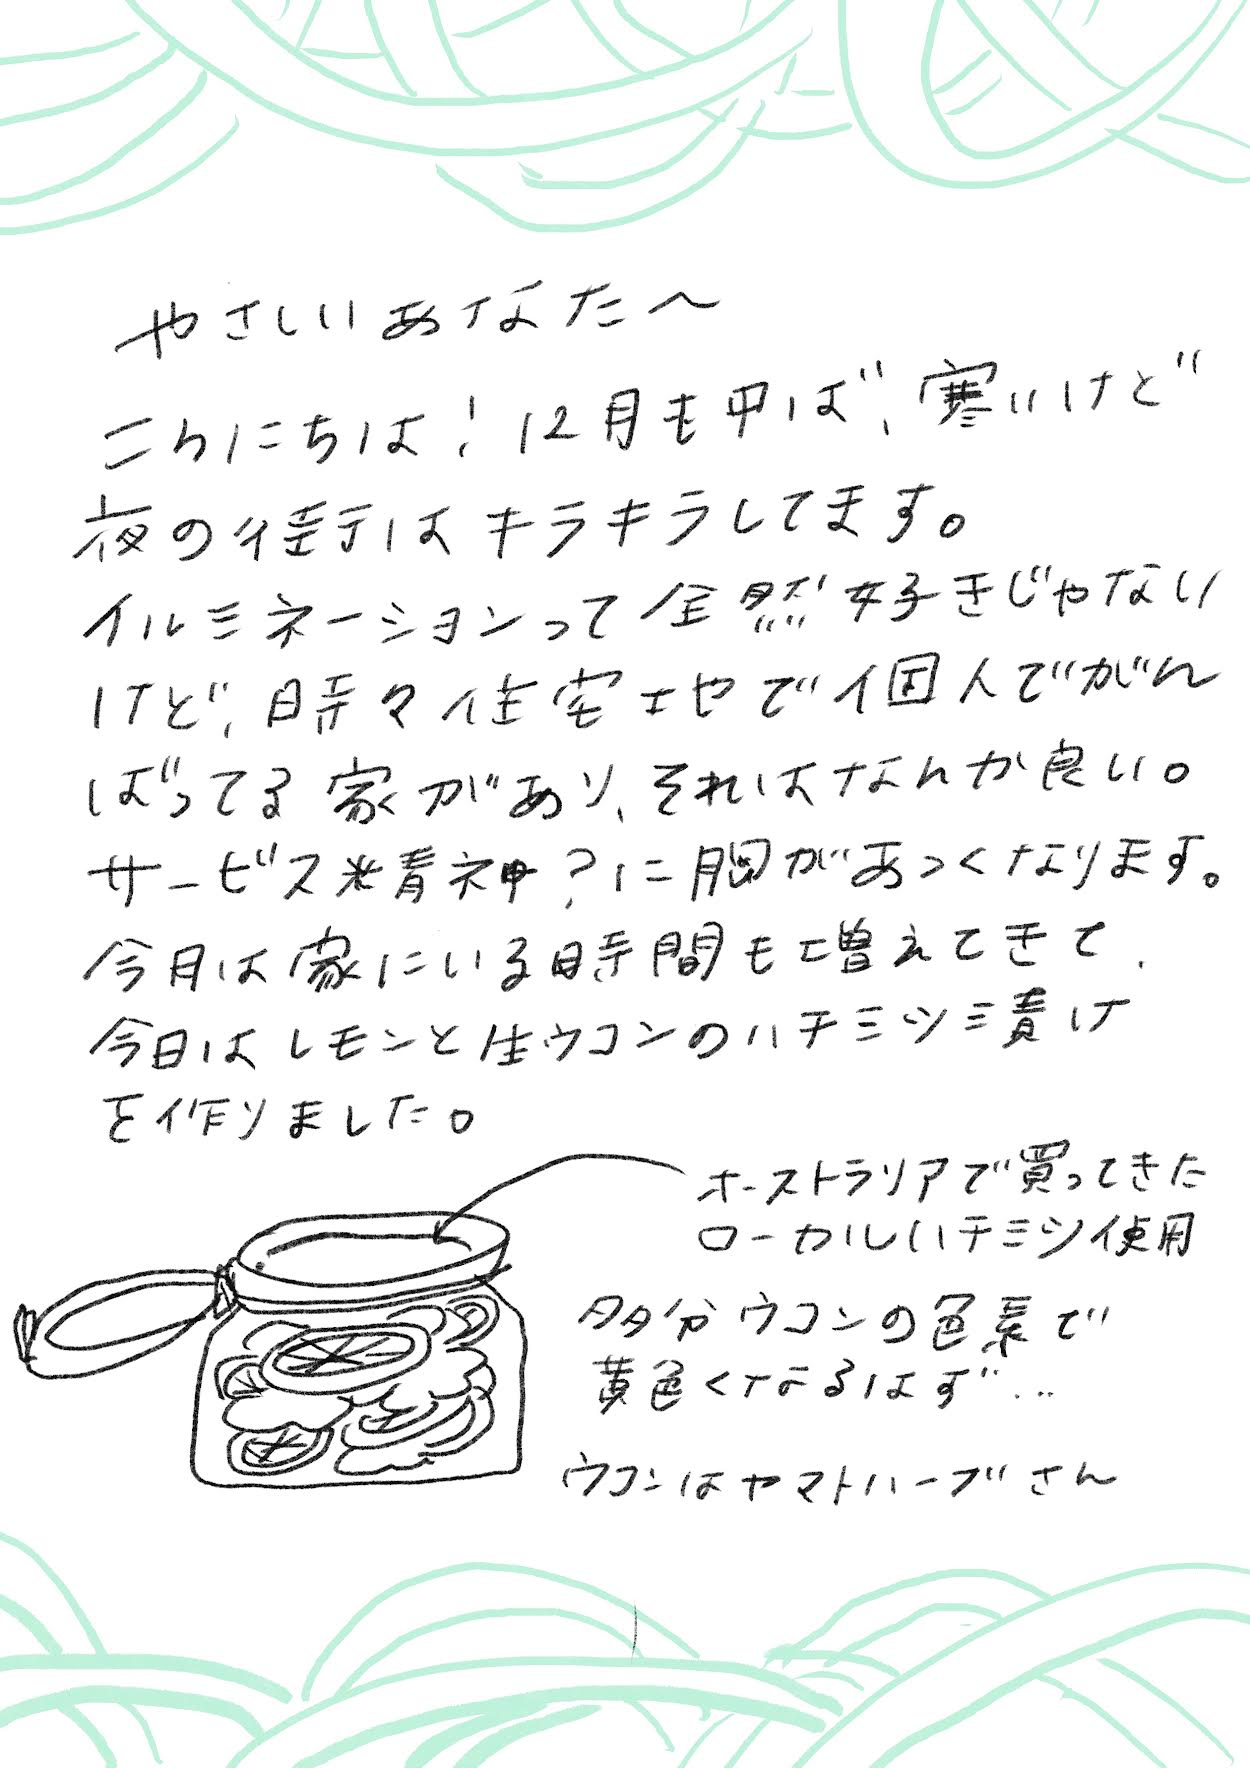 やさしいあなたへ
こんにちは！12月も中ば、寒いけど
夜の街はキラキラしてます。
イルミネーションって全然好きじゃない
けど、時々住宅地で個人でがん
ばってる家があり、それはなんか良い。
サービス精神？に胸があつくなります。
今月は家にいる時間も増えてきて、
今日はレモンと生ウコンのハチミツ漬け
を作りました。
オーストラリアで買ってきた
ローカルハチミツ使用
多分ウコンの色素で
黄色くなるはず…
ウコンはヤマトハーブさん